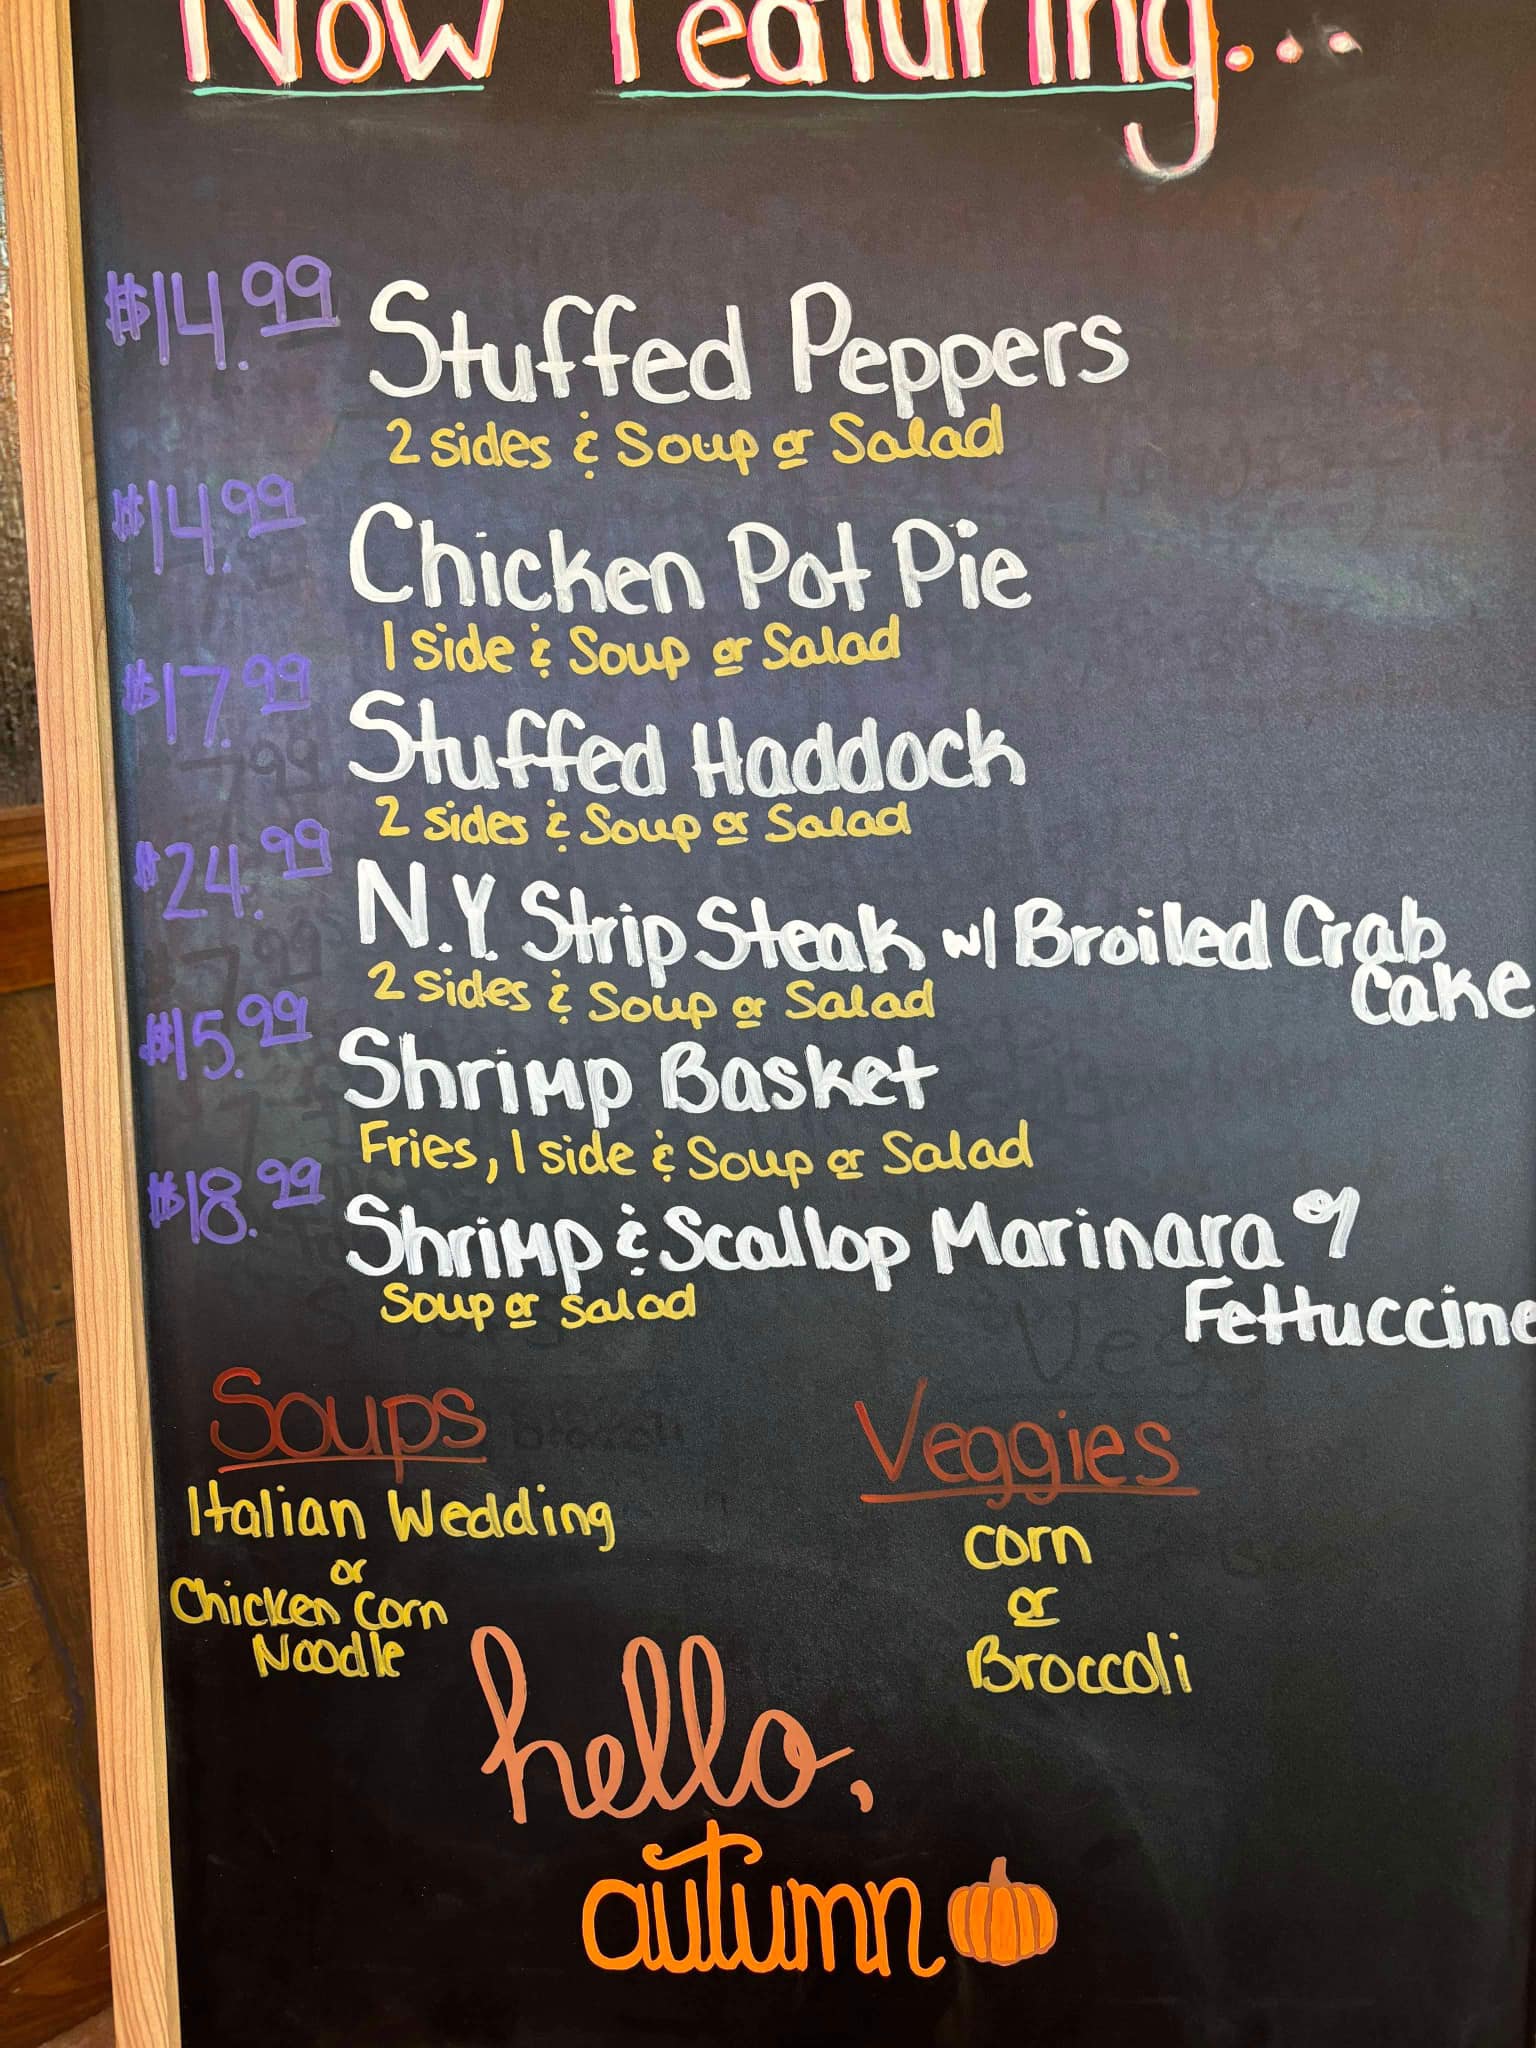 Now Featuring...
$14.99 Stuffed Peppers
2 sides & Soup or Salad
$14.99 Chicken Pot Pie
1 side & Soup or Salad
$17.99 Stuffed Haddock
2 sides & Soup or Salad
$24.99 N.Y. Strip Steak w/ Broiled Crab
Cake
2 sides & Soup or Salad
$15.99 Shrimp Basket
Fries, 1 side & Soup or Salad
$18.99 Shrimp & Scallop Marinara o/
Fettuccine
Soup or Salad
Soups
Italian Wedding
or
Chicken Corn
Noodle
Veggies
Corn
or
Broccoli
hello,
autumn